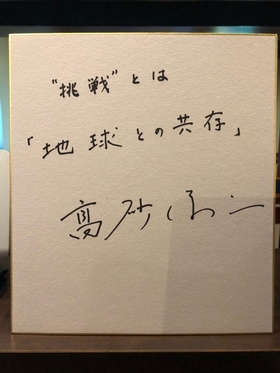 "挑戦"とは
「地球との共存」
高砂淳二